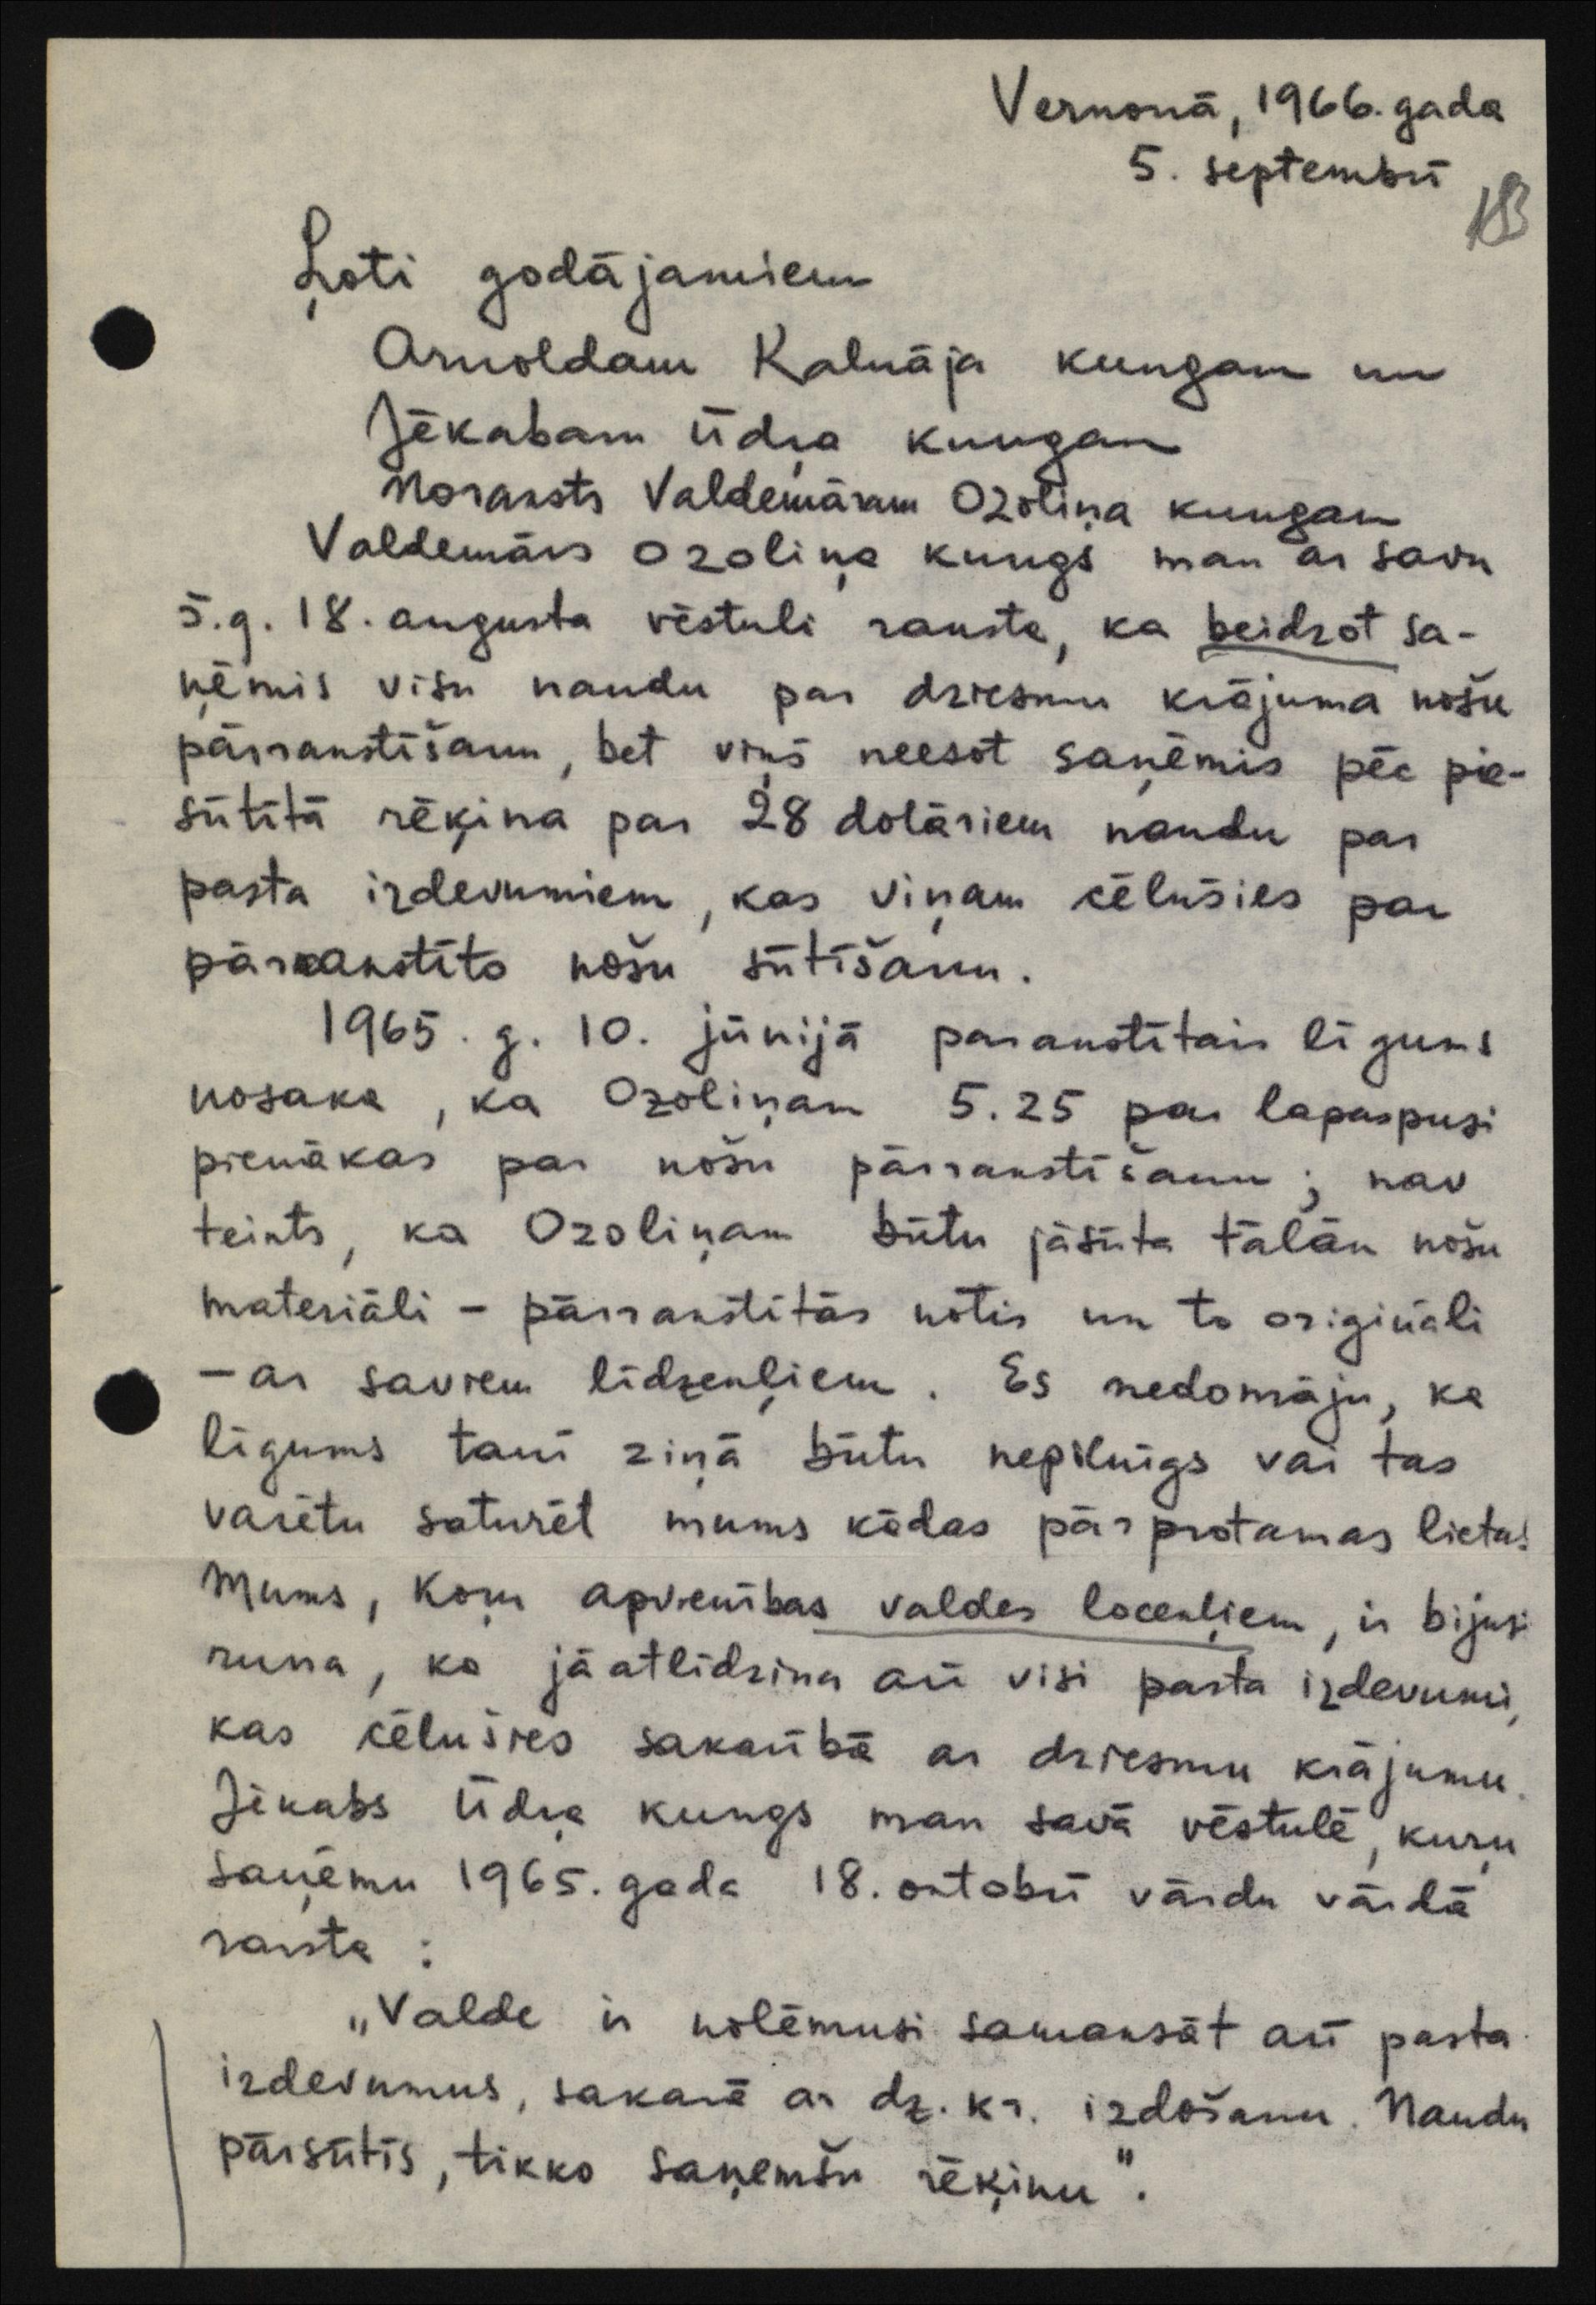 Vernonā, 1966. gada
5. septembrī
18
Ļoti godājamiem
Arnoldam Kalnāja kungam un
Jēkabam Ūdŗa kungam
Noraksts Valdemāram Ozoliņa kungam
Valdemārs Ozoliņa kungs man ar savu
š.g. 18. augusta vēstuli raksta, ka beidzot sa-
ņēmis visu naudu par dziesmu krājuma nošu
pārrakstīšanu, bet viņš neesot saņēmis pēc pie-
sūtītā rēķina par 28 dolāriem naudu par
pasta izdevumiem, kas viņam cēlušies par
pārrakstīto nošu sūtīšanu.
1965. g. 10. jūnijā parakstītais līgums
nosaka, ka Ozoliņam 5.25 par lapaspusi
pienākas par nošu pārrakstīšanu; nav
teikts, ka Ozoliņam būtu jāsūta tālāk nošu
materiāli - pārrakstītās notis un to oriģināli
- ar saviem līdzekļiem. Es nedomāju, ka
līgums tanī ziņā būtu nepilnīgs vai tas
varētu saturēt mums kādas pārprotamas lietas!
Mums, Kom apvienības valdes locekļiem, ir bijusi
runa, ka jāatlīdzina arī visi pasta izdevumi,
kas cēlušies sakarībā ar dziesmu krājumu.
Jēkabs Ūdŗa kungs man savā vēstulē, kuŗu
saņēmu 1965. gada 18. oktobrī vārdu vārdā
raksta:
„Valde ir nolēmusi samaksāt arī pasta
izdevumus, sakarā ar dz. kr. izdošanu. Naudu
pārsūtīs, tikko saņemšu rēķinu".